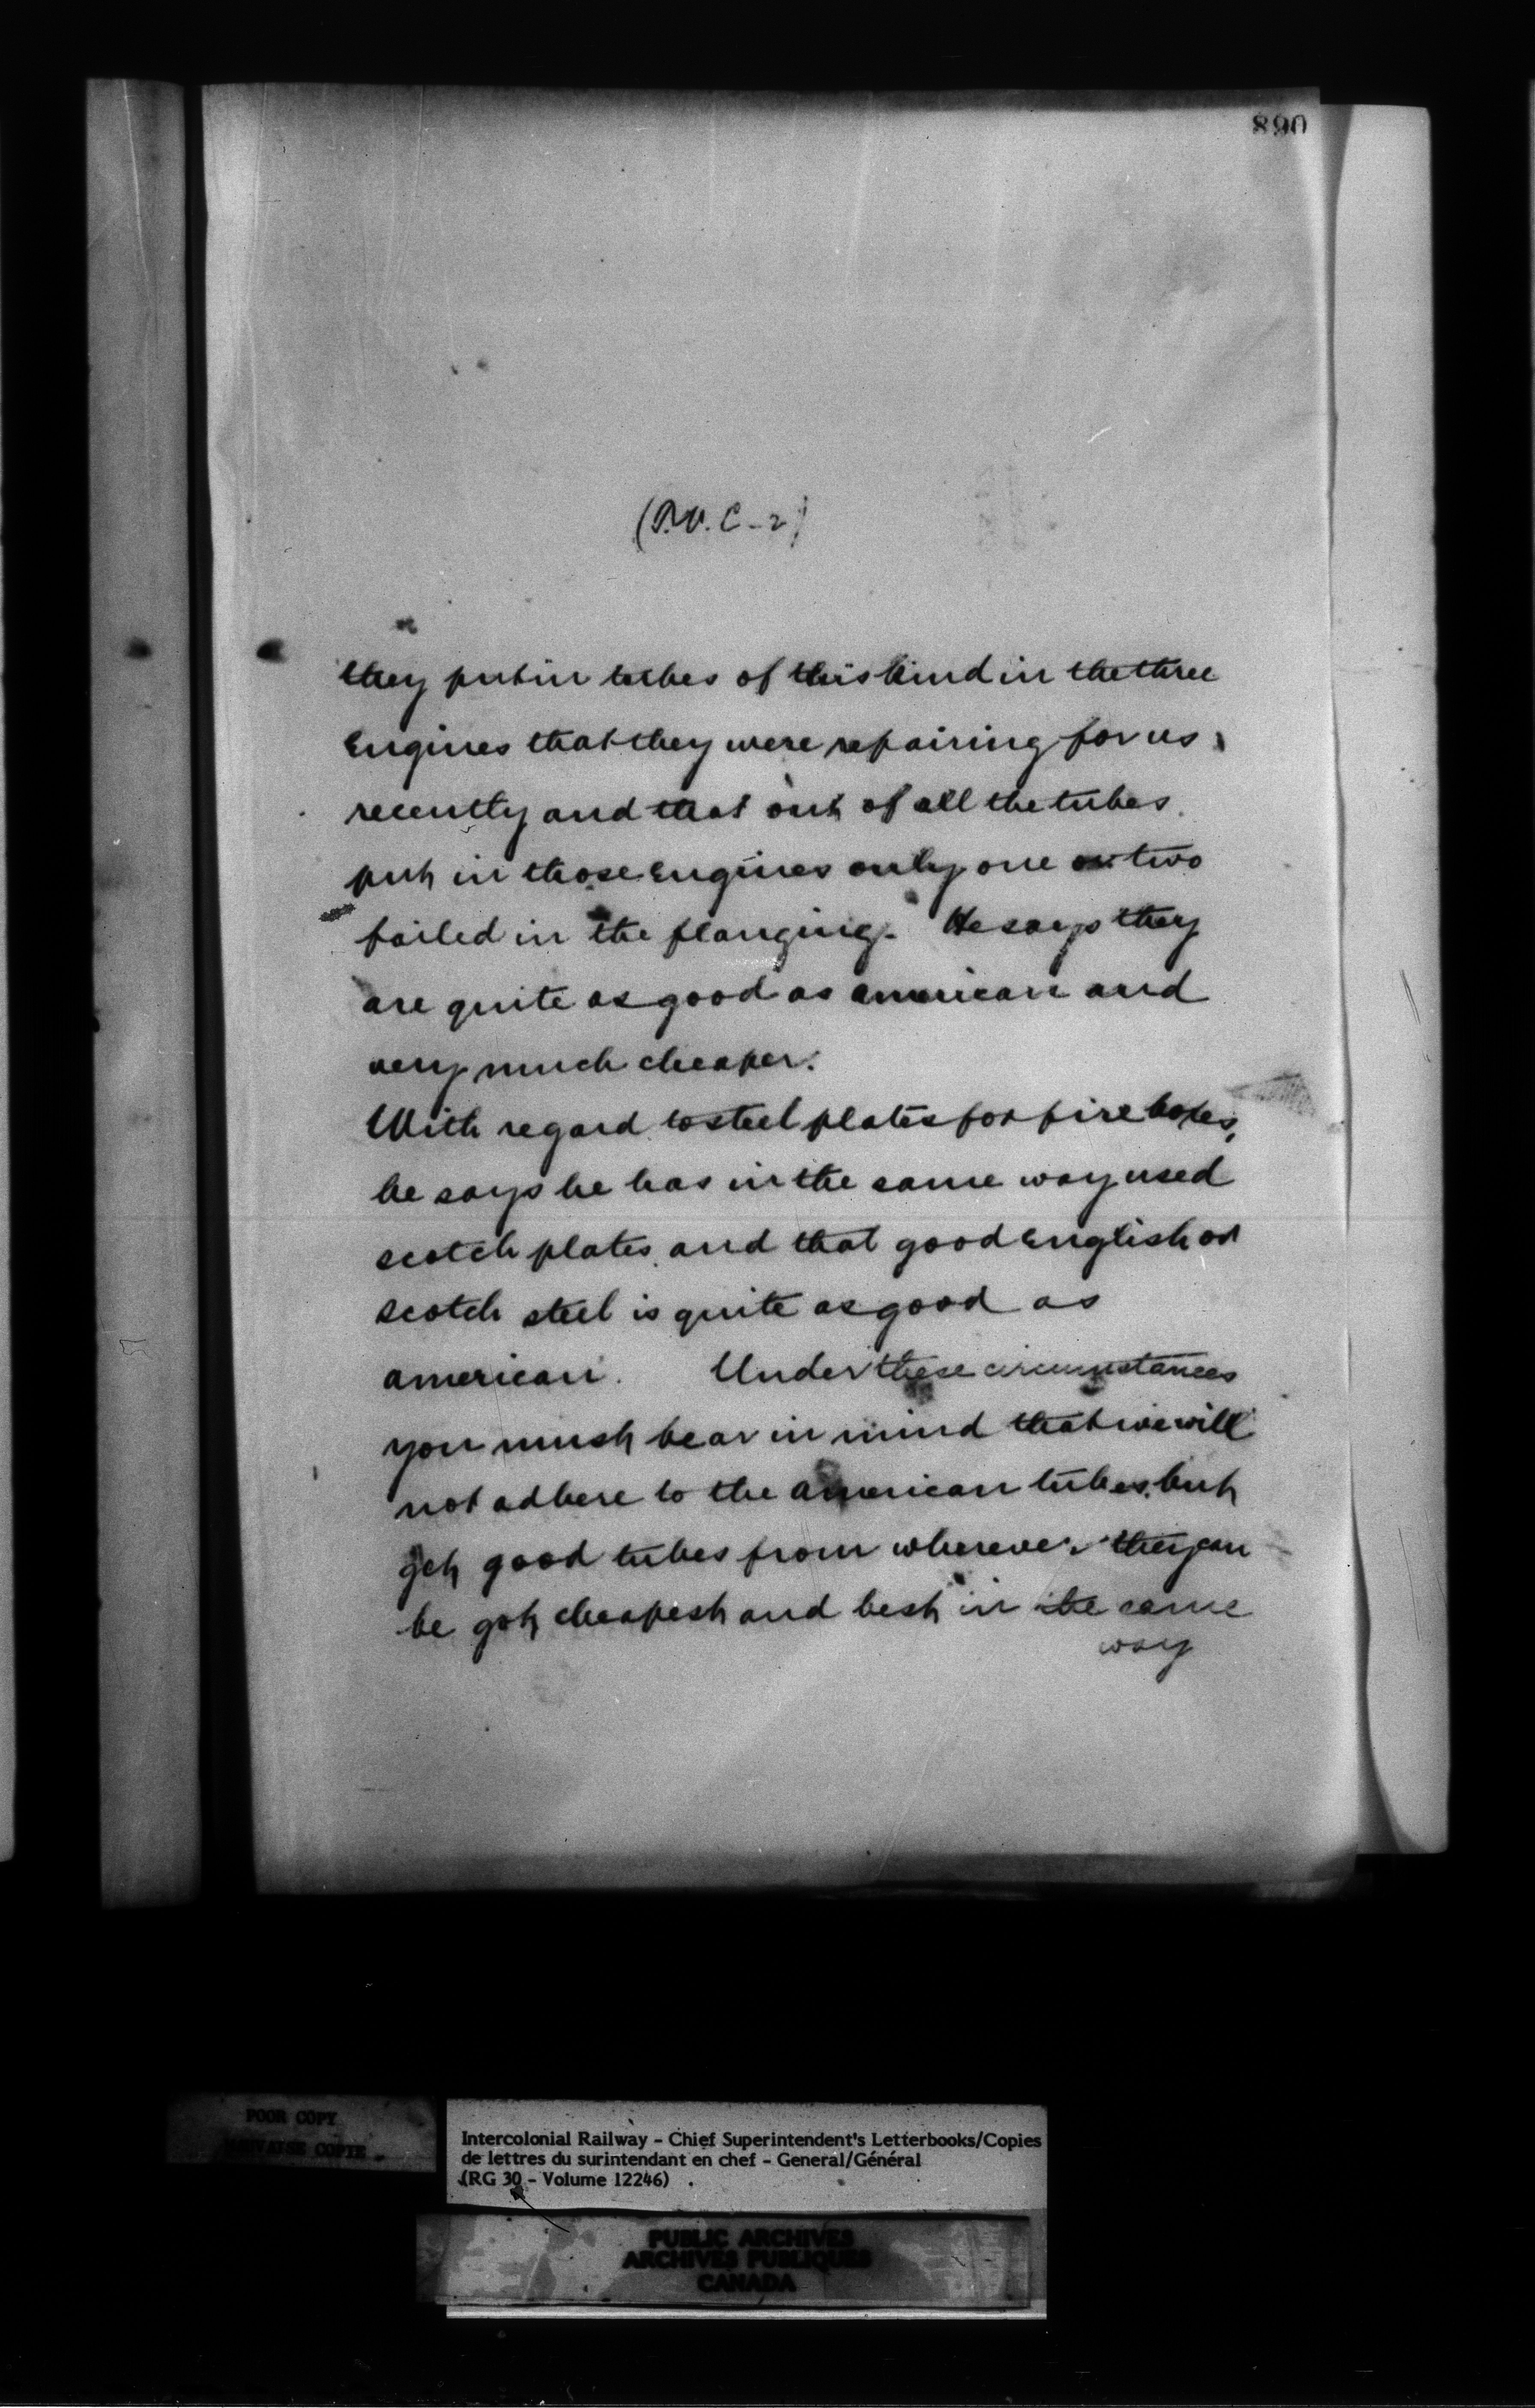 890
(P.V. C - 2)
they put in tubes of this kind in the three
Engines that they were repairing for us
recently and that out of all the tubes
put in those Engines only one or two
failed in the flanging. He says they
are quite as good as american and
very much cheaper.
With regard to steel plates for fire boxes,
he says he has in the same way used
scotch plates and that good English or
scotch steel is quite as good as
american. Under these circumstances
you must bear in mind that we will
not adhere to the american tubes but
get good tubes from wherever they can
be got cheapest and best in the same
way
POOR COPY
MAUVAISE COPIE
Intercolonial Railway - Chief Superintendent's Letterbooks/Copies
de lettres du surintendant en chef - General/Général
(RG 30 - Volume 12246)
PUBLIC ARCHIVES
ARCHIVES PUBLIQUES
CANADA